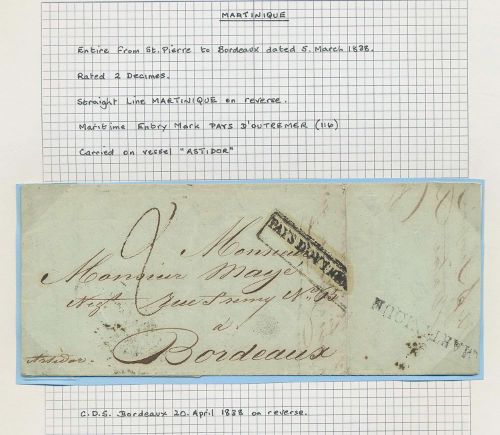 MARTINIQUE
Entire from St. Pierre to Bordeaux dated 5. March 1838.
Rated 2 Decimes.
Straight Line MARTINIQUE on reverse.
Maritime Entry Mark PAYS D'OUTREMER (116)
Carried on vessel "ASTIDOR"
2
PAYS D'OUTREMER
Monsieur
Monsieur Mayé
Negt. Rue
à
Bordeaux
Astidor.
MARTINIQUE
C.D.S. Bordeaux 20. April 1838 on reverse.